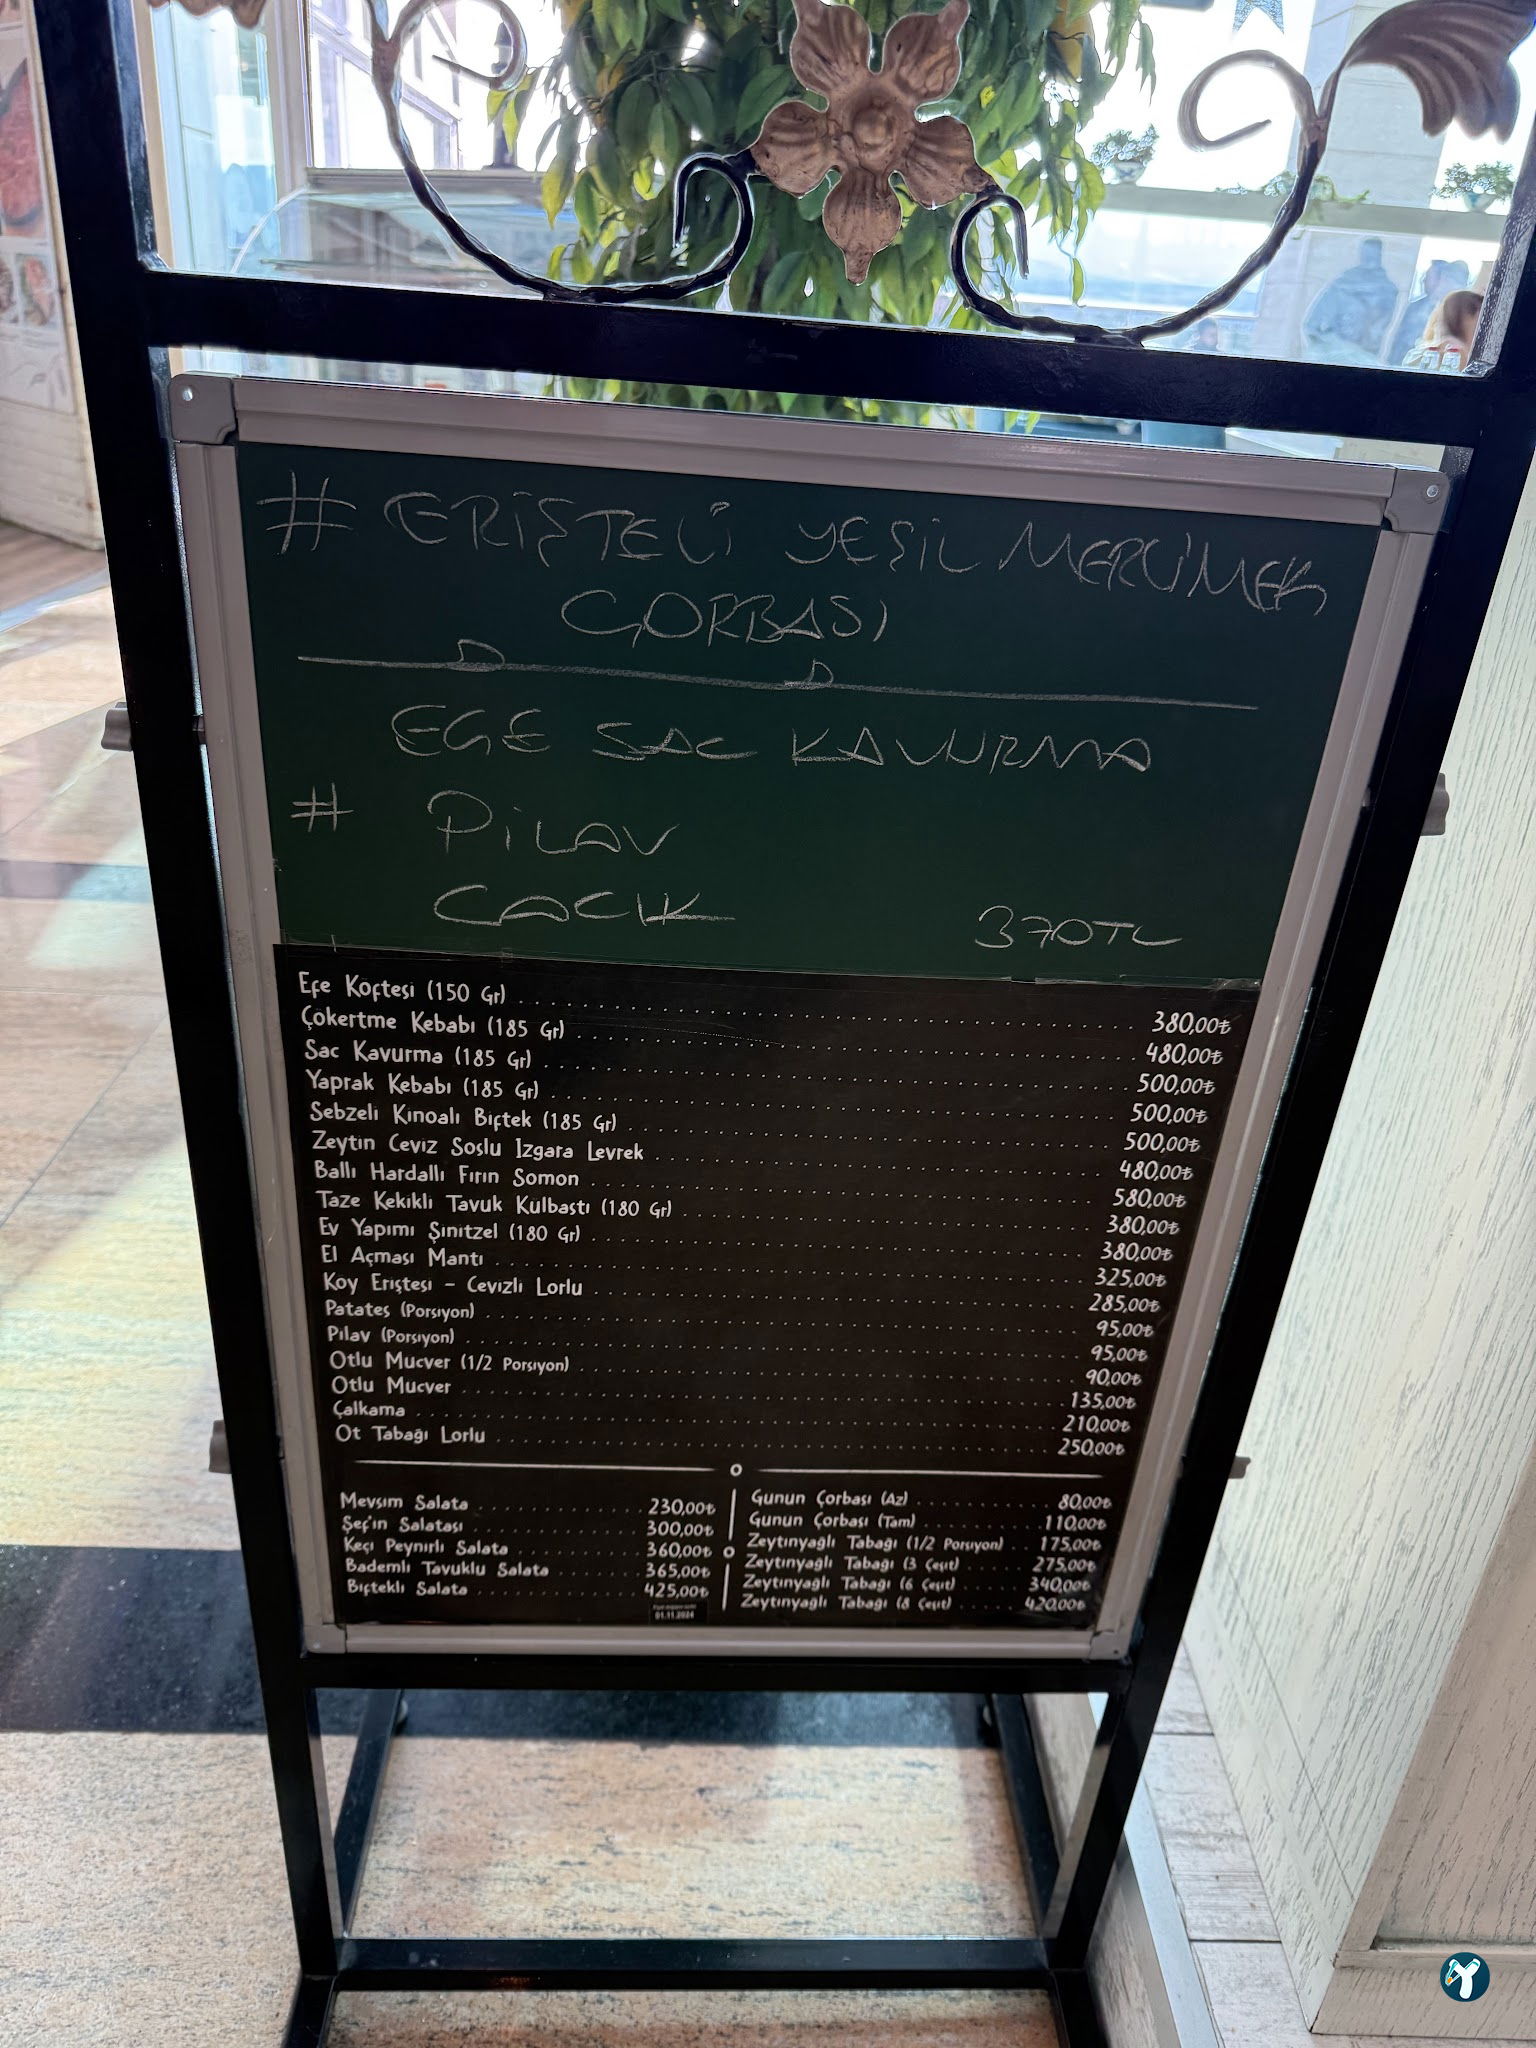 # ERİŞTELİ YEŞİL MERCİMEK
ÇORBASI
EGE SAC KAVURMA
# PİLAV
CACIK 370TL
Efe Köftesi (150 Gr) 380,00₺
Çökertme Kebabı (185 Gr) 480,00₺
Sac Kavurma (185 Gr) 500,00₺
Yaprak Kebabı (185 Gr) 500,00₺
Sebzeli Kinoalı Biftek (185 Gr) 500,00₺
Zeytin Ceviz Soslu Izgara Levrek 480,00₺
Ballı Hardallı Fırın Somon 580,00₺
Taze Kekikli Tavuk Külbastı (180 Gr) 380,00₺
Ev Yapımı Şinitzel (180 Gr) 380,00₺
El Açması Mantı 325,00₺
Köy Eriştesi - Cevizli Lorlu 285,00₺
Patates (Porsiyon) 95,00₺
Pilav (Porsiyon) 95,00₺
Otlu Mucver (1/2 Porsiyon) 90,00₺
Otlu Mucver 135,00₺
Çalkama 210,00₺
Ot Tabağı Lorlu 250,00₺
Mevsim Salata 230,00₺
Şef'in Salatası 300,00₺
Keçi Peynirli Salata 360,00₺
Bademli Tavuklu Salata 365,00₺
Biftekli Salata 425,00₺
Gunun Çorbası (Az) 80,00₺
Gunun Çorbası (Tam) 110,00₺
Zeytinyağlı Tabağı (1/2 Porsiyon) 175,00₺
Zeytinyağlı Tabağı (3 Çeşit) 275,00₺
Zeytinyağlı Tabağı (6 Çeşit) 340,00₺
Zeytinyağlı Tabağı (8 Çeşit) 420,00₺
01.11.2024